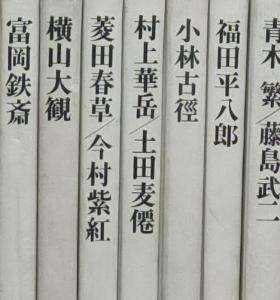 青木 繁／藤島武二
福田平八郎
小林古徑
村上華岳／土田麦僊
菱田春草／今村紫紅
横山大観
富岡鉄斎